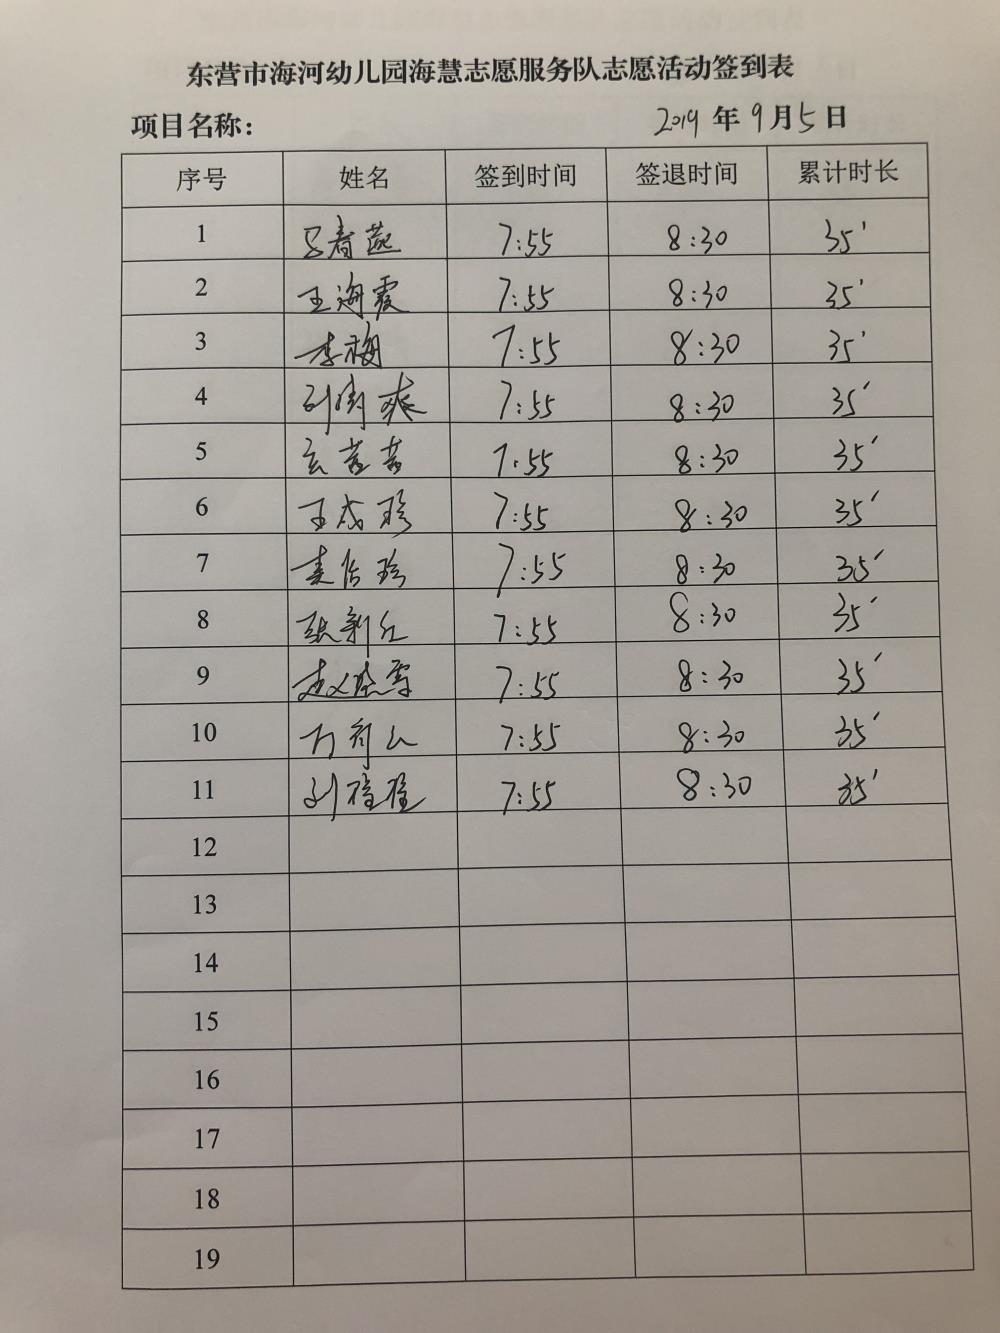 东营市海河幼儿园海慧志愿服务队志愿活动签到表
项目名称： 2019年9月5日
序号 姓名 签到时间 签退时间 累计时长
1 吕春燕 7:55 8:30 35'
2 王海霞 7:55 8:30 35'
3 李梅 7:55 8:30 35'
4 刘树爽 7:55 8:30 35'
5 7:55 8:30 35'
6 王成珍 7:55 8:30 35'
7 7:55 8:30 35'
8 张新红 7:55 8:30 35'
9 赵晓雪 7:55 8:30 35'
10 7:55 8:30 35'
11 7:55 8:30 35'
12
13
14
15
16
17
18
19